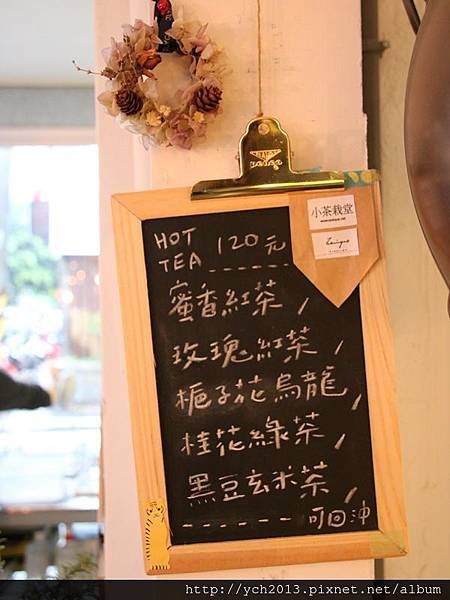 小茶栽堂
HOT
TEA 120元
蜜香紅茶,
玫瑰紅茶,
梔子花烏龍,
桂花綠茶,
黑豆玄米茶,
可回沖
http://ych2013.pixnet.net/album